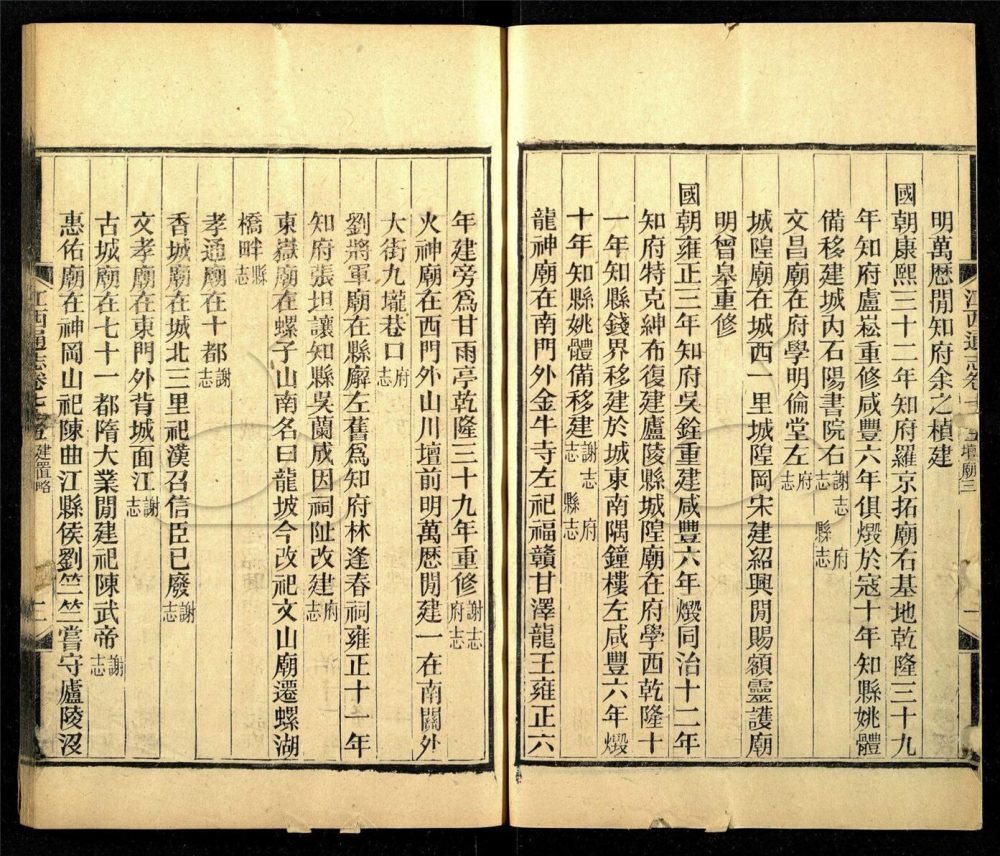 明萬歴閒知府余之楨建
國朝康熙三十二年知府羅京拓廟右基地乾隆三十九
年知府盧崧重修咸豐六年俱燬於寇十年知縣姚體
備移建城內石陽書院右謝志 府志 縣志
文昌廟在府學明倫堂左府志
城隍廟在城西一里城隍岡宋建紹興閒賜額靈護廟
明曾皋重修
國朝雍正三年知府吳銓重建咸豐六年燬同治十二年
知府特克紳布復建廬陵縣城隍廟在府學西乾隆十
一年知縣錢界移建於城東南隅鐘樓左咸豐六年燬
十年知縣姚體備移建謝志 府志 縣志
龍神廟在南門外金牛寺左祀福贛甘澤龍王雍正六
年建旁爲甘雨亭乾隆三十九年重修謝志 府志
火神廟在西門外山川壇前明萬歴閒建一在南關外
大街九壠巷口府志
劉將軍廟在縣廨左舊爲知府林逢春祠雍正十一年
知府張坦讓知縣吳蘭成因祠址改建府志
東嶽廟在螺子山南名曰龍坡今改祀文山廟遷螺湖
橋畔縣志
孝通廟在十都謝志
香城廟在城北三里祀漢召信臣已廢謝志
文孝廟在東門外背城面江謝志
古城廟在七十一都隋大業閒建祀陳武帝謝志
惠佑廟在神岡山祀陳曲江縣侯劉竺竺嘗守廬陵沒
江西通志卷七 建置略 二